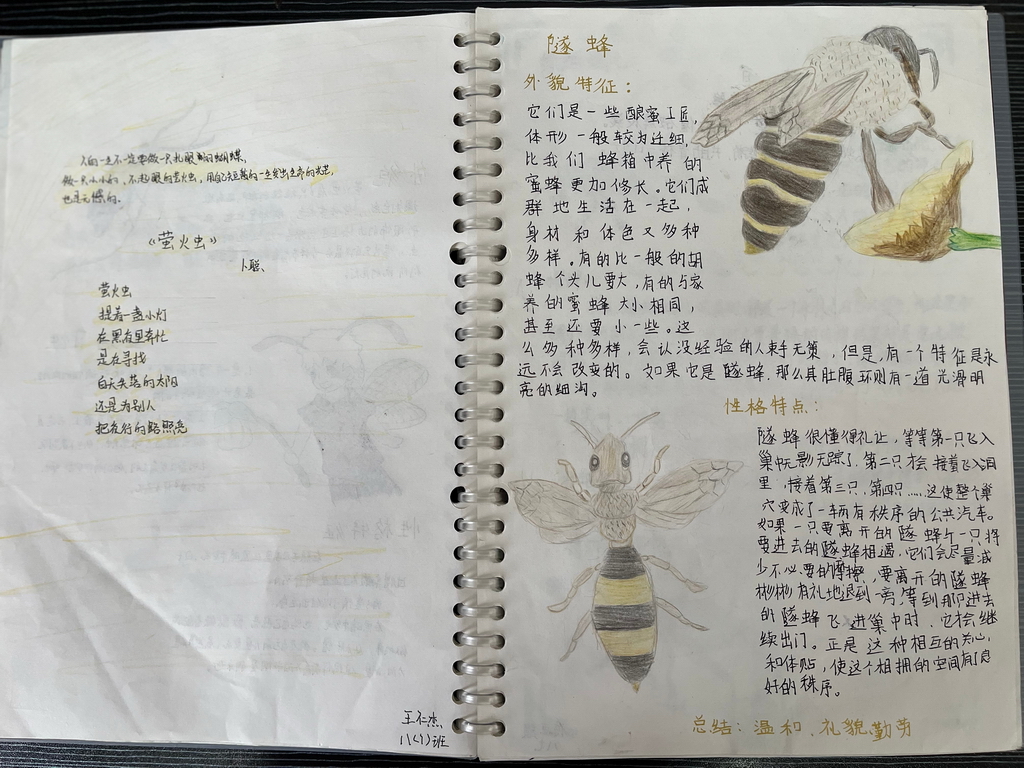 人的一生不一定要做一只扎眼的蝴蝶,
做一只小小的,不起眼的萤火虫,用自己短暂的一生发出生命的光芒,
也是无憾的。
《萤火虫》
卜聪、
萤火虫
提着一盏小灯
在黑夜里奔忙
是在寻找
白天失落的太阳
还是为别人
把夜行的路照亮
王仁杰
八(1)班
隧蜂
外貌特征:
它们是一些酿蜜工匠,
体形一般较为纤细,
比我们蜂箱中养的
蜜蜂更加修长。它们成
群地生活在一起,
身材和体色又多种
多样。有的比一般的胡
蜂个头儿要大,有的与家
养的蜜蜂大小相同,
甚至还要小一些。这
么多种多样,会让没经验的人束手无策,但是,有一个特征是永
远不会改变的。如果它是隧蜂,那么其肚腹环则有一道光滑明
亮的细沟。
性格特点:
隧蜂很懂得礼让,等等第一只飞入
巢中无影无踪了,第二只才会接着飞入洞
里,接着第三只,第四只……这使整个巢
穴变成了一辆有秩序的公共汽车。
如果一只要离开的隧蜂与一只将
要进去的隧蜂相遇,它们会尽量减
少不必要的摩擦,要离开的隧蜂
彬彬有礼地退到一旁,等到那只进去
的隧蜂飞进巢中时,它才会继
续出门。正是这种相互的关心,
和体贴,使这个相拥的空间有了良
好的秩序。
总结:温和、礼貌勤劳